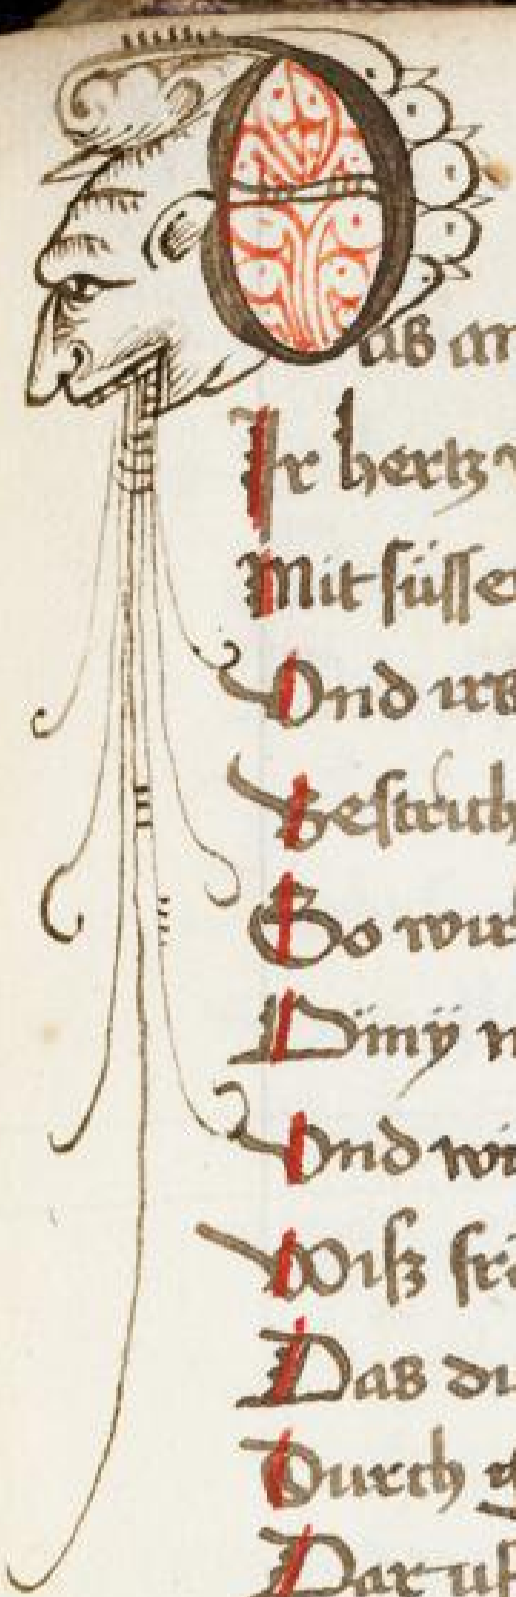 Das an
Ir hertz
Mit süsse
Vnd irs
Gestrich
So wir
Dimÿ n
Vnd wi
Wiß fr
Das du
Durch
Dar uf